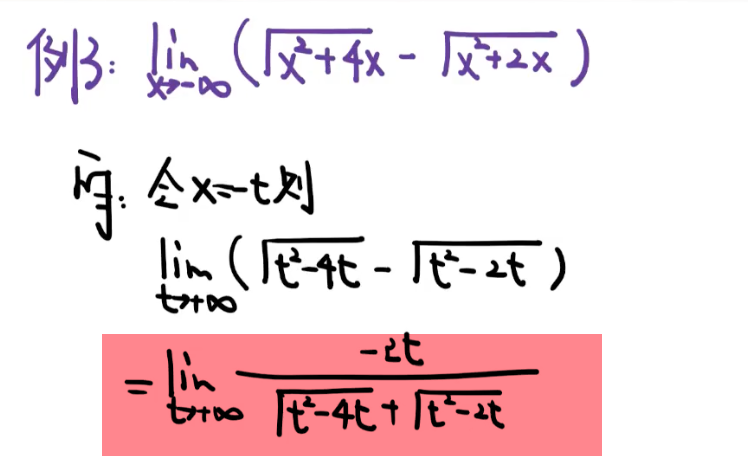 例3: lim x→-∞ (√(x²+4x) - √(x²+2x))
解: 令x=-t则
lim t→+∞ (√(t²-4t) - √(t²-2t))
= lim t→+∞ -2t / (√(t²-4t) + √(t²-2t))